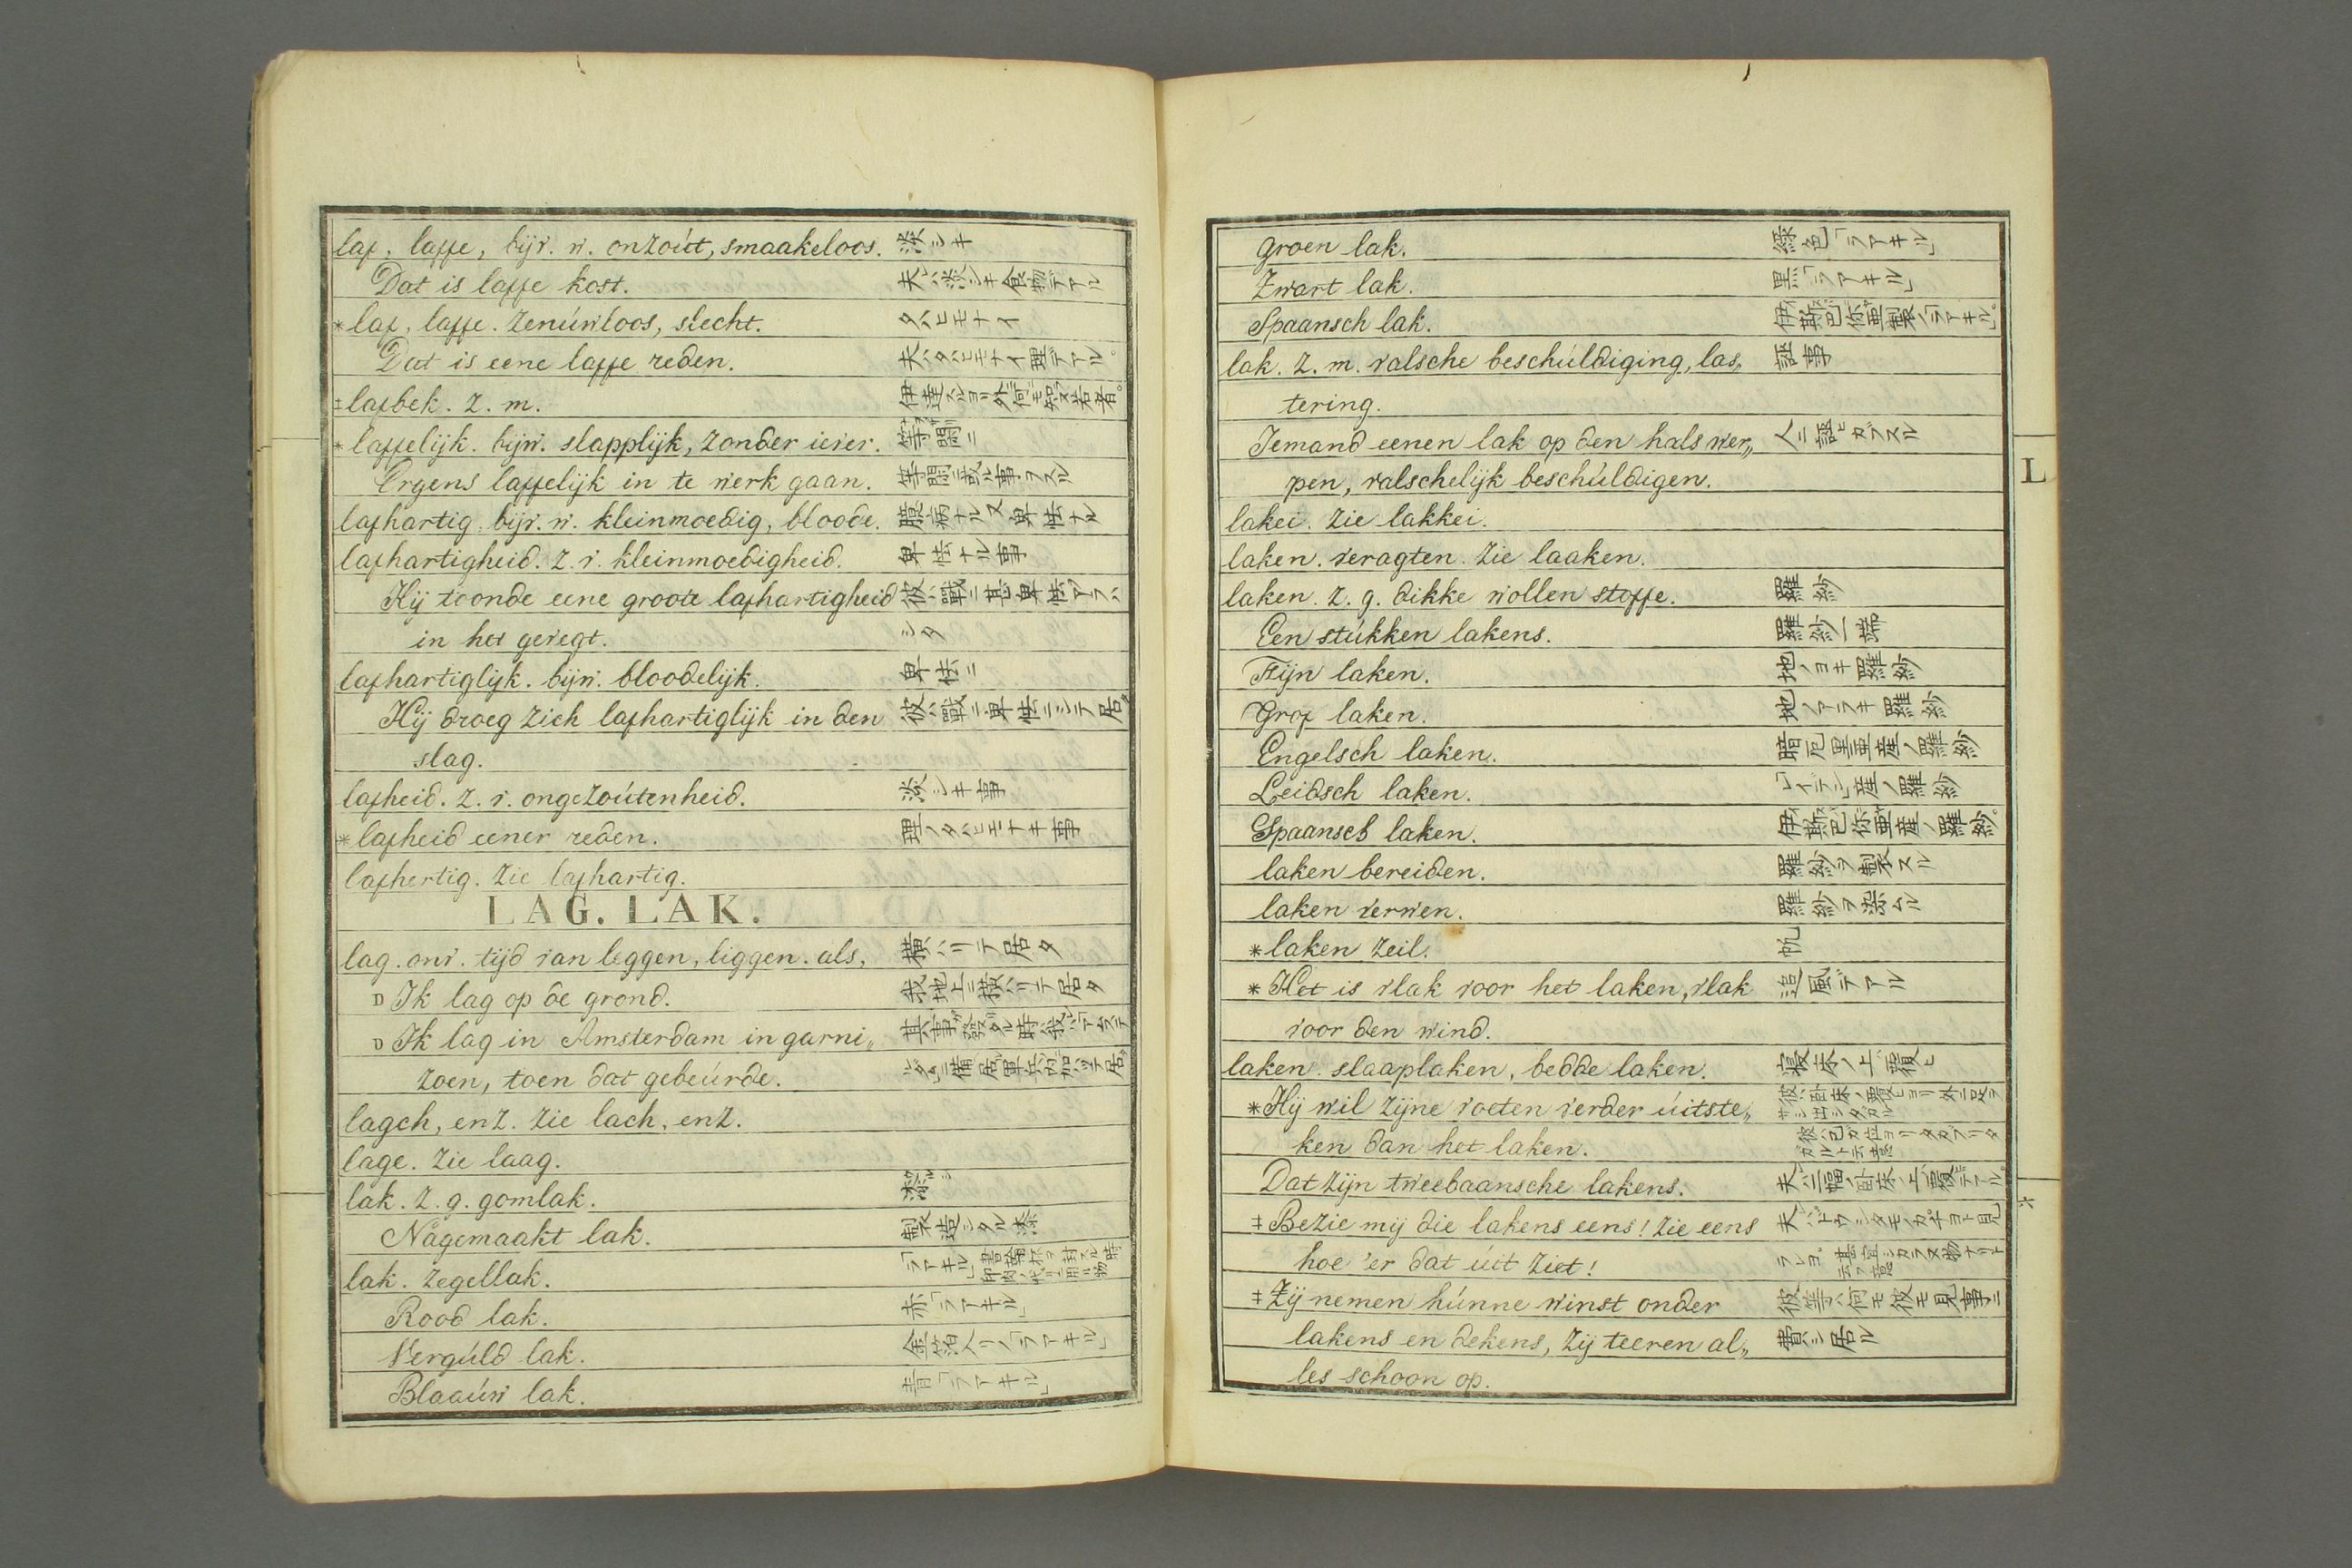 laf, laffe, bijv. w. onzoút, smaakeloos. 淡シキ
Dat is laffe kost. 夫ハ淡シキ食物デアル
*laf, laffe. zenúwloos, slecht. タハヒモナイ
Dat is eene laffe reden. 夫ハタハヒモナイ理デアル。
‡lafbek. z. m. 伊達スルヨリ外何モ知ヌ若者。
*laffelijk. bijw. slapplijk, zonder iever. 等閑ニ
Ergens laffelijk in te werk gaan. 等閑ニ或ル事ヲスル
lafhartig. bijv. w. kleinmoedig, bloode. 臆病ナル又卑怯ナル
lafhartigheid. z. v. kleinmoedigheid. 卑怯ナル事
Hij toonde eene groote lafhartigheid 彼ハ戰ニ甚卑怯アラハ
in het gevegt. シタ
lafhartiglijk. bijw. bloodelijk. 卑怯ニ
Hij droeg zich lafhartiglijk in den 彼ハ戰ニ卑怯ニシテ居タ
slag.
lafheid. z. v. ongezoútenheid. 淡シキ事
*lafheid eener reden. 理ノタハヒモナキ事
lafhertig. zie lafhartig.
LAG. LAK.
lag. onv. tijd van leggen, liggen. als, 横ハリテ居タ
D Ik lag op de grond. 我地上ニ横ハリテ居タ
D Ik lag in Amsterdam in garni„ 其事ガ發タル時我ハアムステ
zoen, toen dat gebeúrde. ルダムニ備居軍兵ノ内ニ加ハツテ居タ
lagch, enz. zie lach, enz.
lage. zie laag.
lak. z. g. gomlak. 漆
Nagemaakt lak. 製造シタル漆
lak. zegellak. 「ラアキル」書翰杯ヲ封スル時印肉ノ代リニ用ル物
Rood lak. 赤「ラアキル」
Vergúld lak. 金箔入リノ「ラアキル」
Blaaúw lak. 青「ラアキル」
groen lak. 綠色「ラアキル」
Zwart lak. 黒「ラアキル」
Spaansch lak. 伊斯巴你亜製ノ「ラアキル」。
lak. z. m. valsche beschúldiging, las„ 誣事
tering.
Iemand eenen lak op den hals wer„ 人ニ誣ヒカブスル
pen, valschelijk beschúldigen.
lakei. zie lakkei.
laken. veragten. zie laaken.
laken. z. g. dikke wollen stoffe. 羅紗
Een stúkken lakens. 羅紗一端
Fijn laken. 地ノヨキ羅紗
Grof laken. 地ノアラキ羅紗
Engelsch laken. 諳厄里亜産ノ羅紗
Leidsch laken. 「レイデン」産ノ羅紗
Spaansch laken. 伊斯巴你亜産ノ羅紗。
laken bereiden. 羅紗ヲ製スル
laken verwen. 羅紗ヲ染ムル
*laken zeil. 帆
* Het is vlak voor het laken, vlak 追風デアル
voor den wind.
laken. slaaplaken, bedde laken. 寝床ノ上ハ覆ヒ
*Hij wil zijne voeten verder úitste„ 彼ハ臥床ノ覆ヒヨリ外ニ足ヲサシ出シタガル
ken dan het laken. 彼ハ己ガ位ヨリタカブリタガルト云意
Dat zijn tweebaansche lakens. 夫ハ二幅ノ臥床ノ上ハ覆デアル。
‡ Bezie mij die lakens eens! zie eens 夫ハドウシタモノカチヨト見
hoe 'er dat úit ziet! ラレヨ。甚宜シカラヌ物ナリト云フ意
‡ Zij nemen húnne winst onder 彼等ハ何モ彼モ見事ニ
lakens en dekens, zij teeren al„ 費シ居ル
les schoon op.
L